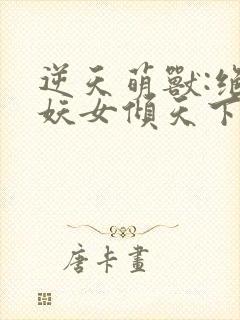 逆天萌獸:絕
妖女傾天下
唐卡畫